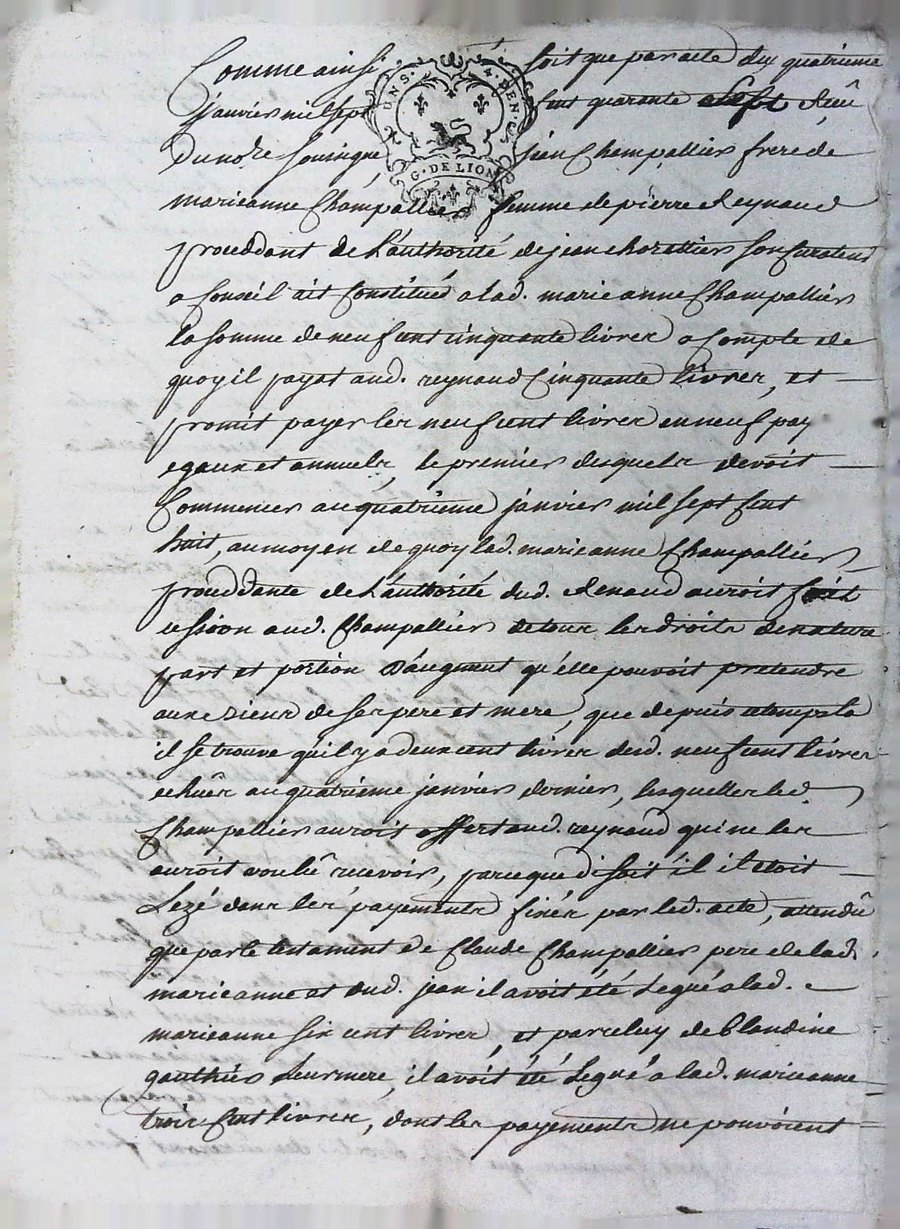 Comme ainsi soit que par acte du quatrieme
janvier mil sept cent quarante sept Reçû
Du no.re jean Champallier frere de
marieanne Champallier femme de pierre Reynaud
proceddant de L'authorité de jean son Curateur
a Conseil ait Constitué a lad. marieanne Champallier
la somme de neuf cent cinquante livres a Compte de
quoy il payat aud. reynaud Cinquante livres, et
promit payer les neuf cent livres en neuf pay
egaux et annuels, le premier desquels devoit
Commencer au quatrieme janvier mil sept cent
huit, au moyen de quoy lad. marieanne Champallier
proceddante de L'authorité dud. Renaud auroit fait
cession aud. Champallier de tous les droits de nature
part et portion D'augment qu'elle pouvoit pretendre
de ses pere et mere, que depuis ce temps la
il se trouve qu'il y a deux cent livres desd. neuf cent livres
echües au quatrieme janvier dernier, lesquelles led.
Champallier auroit offert aud. reynaud qui ne les
auroit voulû recevoir, parce que disoit il il etoit
Lezé dans les payements fixés par led. acte, attendû
que par le testament de Claude Champallier pere de lad.
marieanne et dud. jean il avoit été Legué a lad.
marieanne six cent livres, et par celuy de Blandine
gauthier Leur mere, il avoit été Legué a lad. marieanne
trois cent livres, dont les payements ne pouvoient
UN S. 4. DEN.
G. DE LION